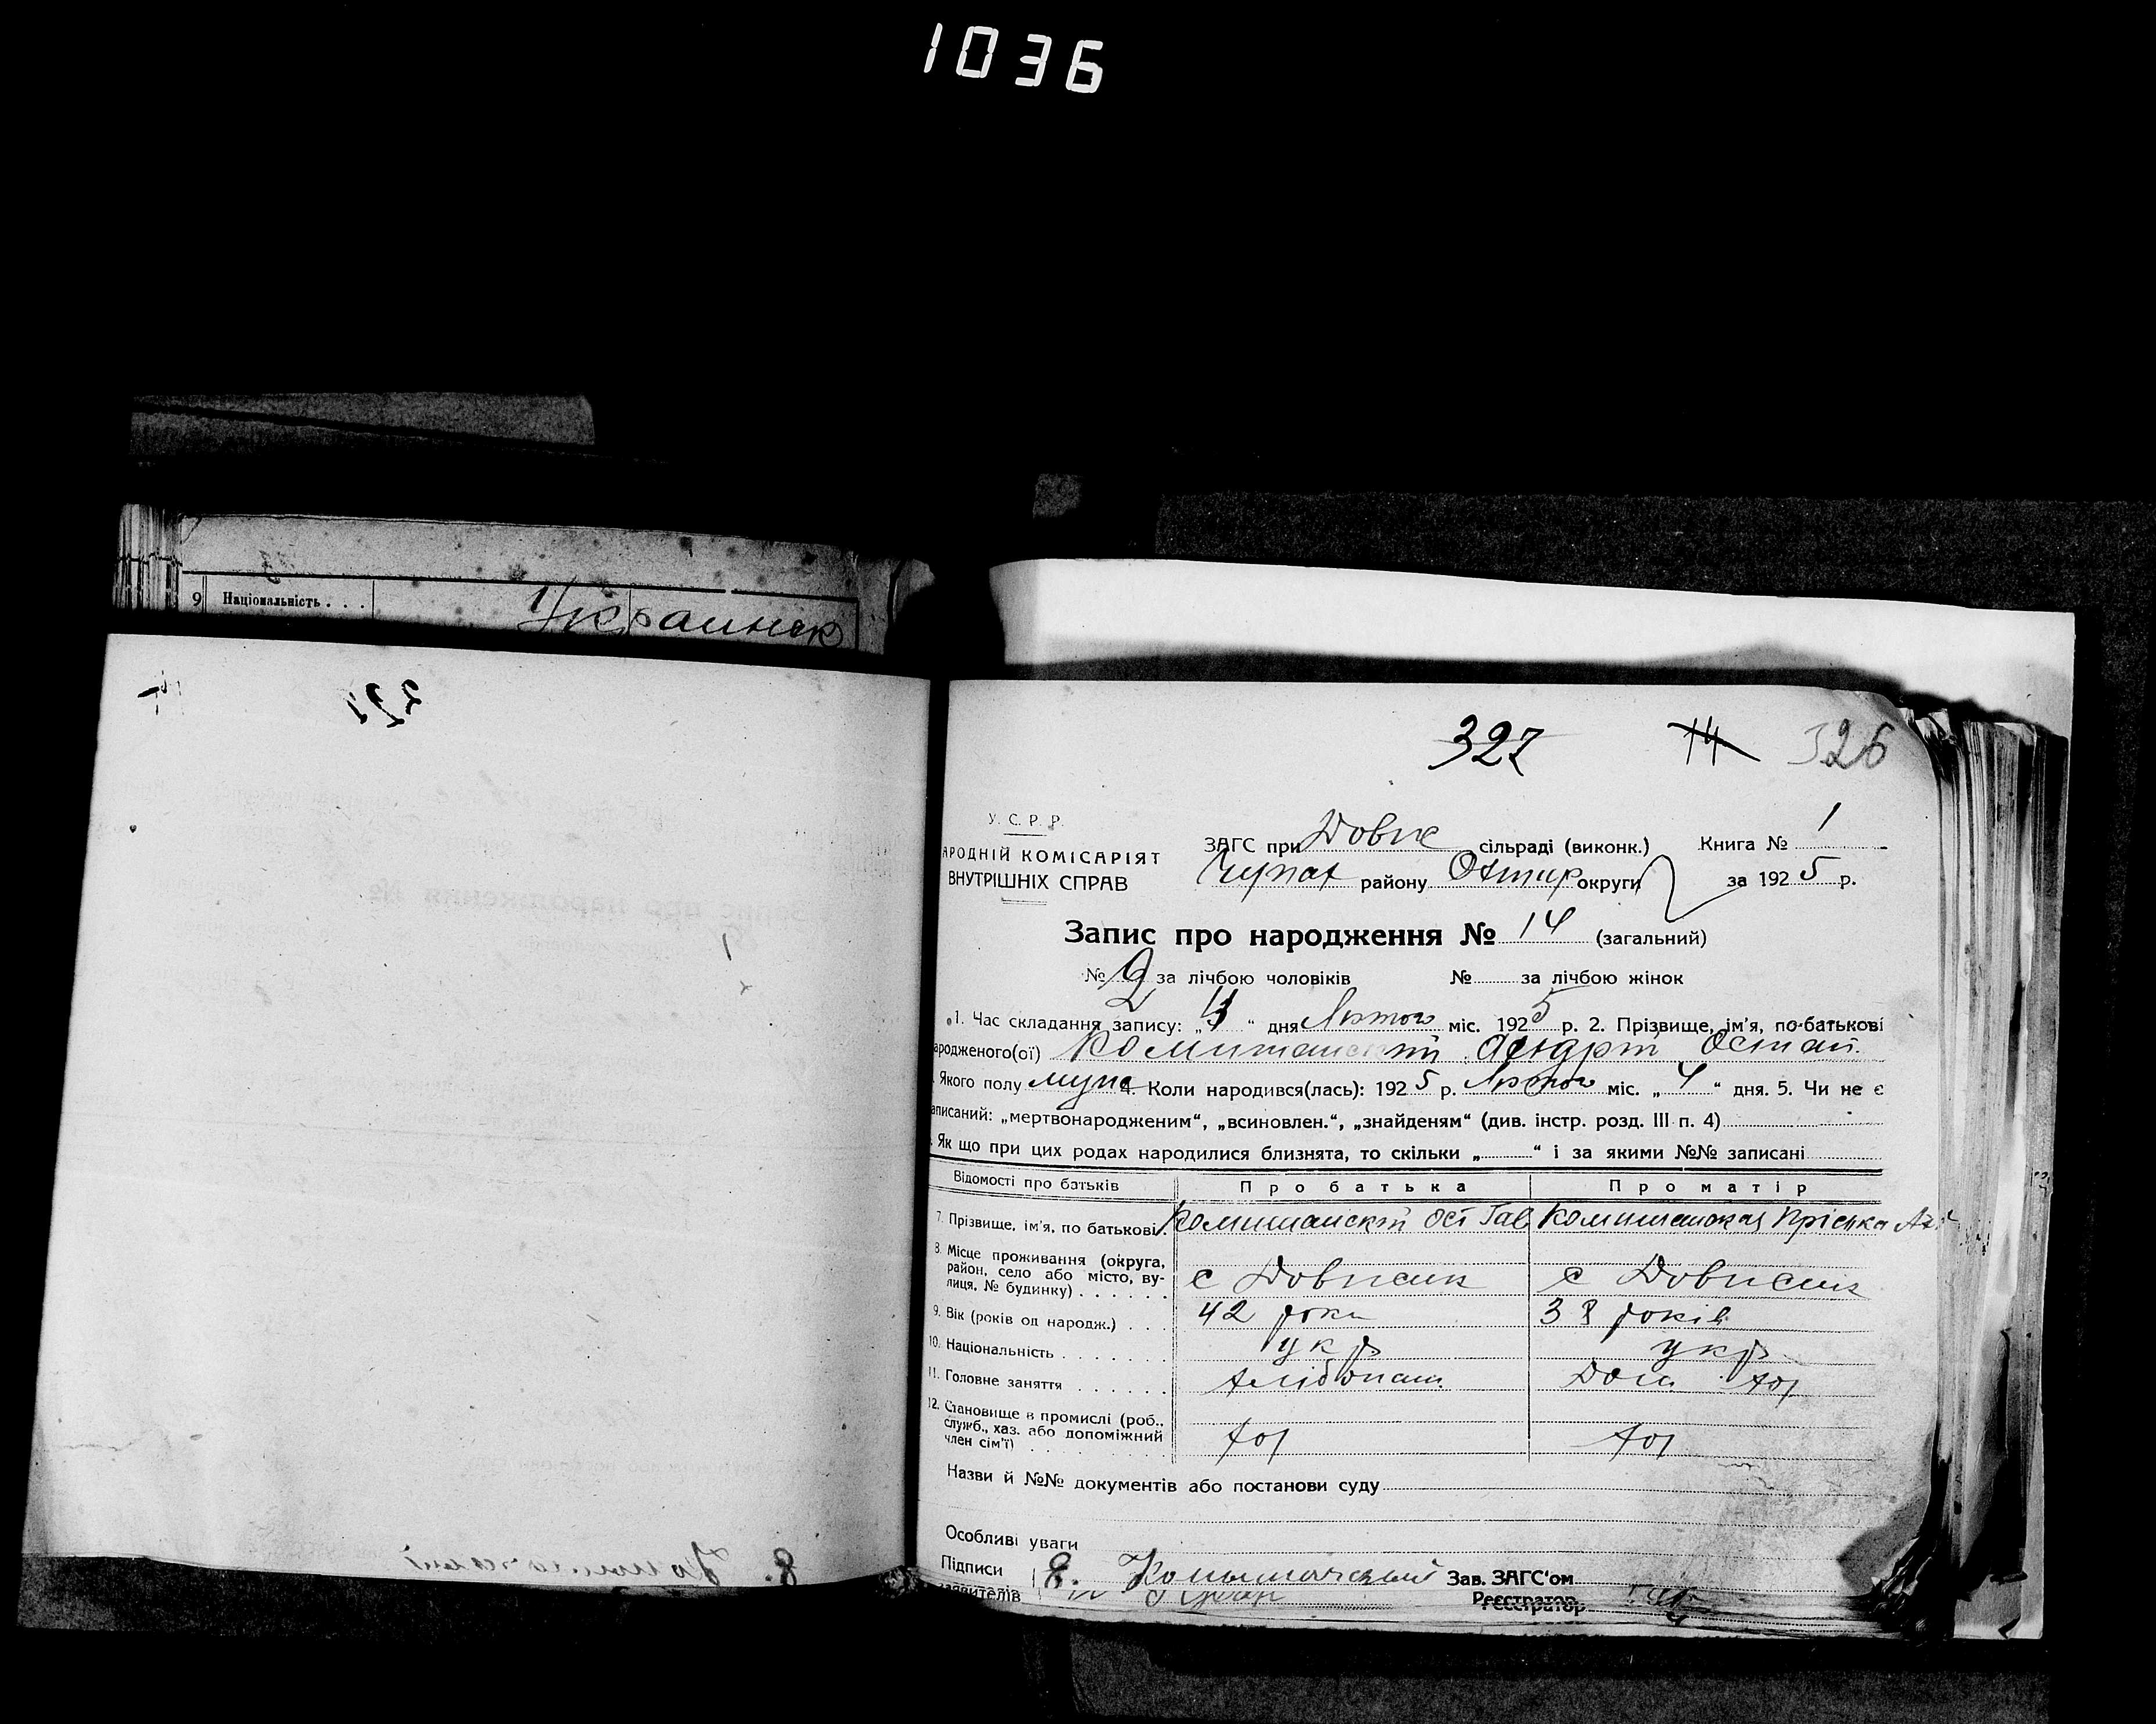 1036
9 Національність . . .
Украинск
327 14 326
У. С. Р. Р.
АРОДНІЙ КОМІСАРІЯТ
ВНУТРІШНІХ СПРАВ
ЗАГС при Довж сільраді (виконк.) Книга № 1
Чупах району Охтир округи за 1925 р.
Запис про народження № 14 (загальний)
№ 9 за лічбою чоловіків № за лічбою жінок
1. Час складання запису: „ “ дня Лютого міс. 1925 р. 2. Прізвище, ім'я, по-батькові
ародженого(ої) Комишанський Остап.
Якого полу муж 4. Коли народився(лась): 1925 р. Лютого міс. „4“ дня. 5. Чи не є
аписаний: „мертвонародженим“, „всиновлен.“, „знайденям“ (див. інстр. розд. III п. 4)
Як що при цих родах народилися близнята, то скільки „ “ і за якими №№ записані
Відомості про батьків Про батька Про матір
7. Прізвище, ім'я, по батькові. Комишанский Ост Гав Комишанская Пріська
8. Місце проживання (округа,
район, село або місто, ву-
лиця, № будинку) . . . . . . с Довжик с Довжик
9. Вік (років од народж.) . . . 42 роки 38 років
10. Національність . . . . . . . укр укр
11. Головне заняття . . . . . . хлібопаш Дом хоз
12. Становище в промислі (роб.,
служб., хаз. або допоміжний
член сім'ї) . . . . . . . . хоз хоз
Назви й №№ документів або постанови суду
Особливі уваги
Підписи Комишанский Зав. ЗАГС'ом
заявителів Реєстратор